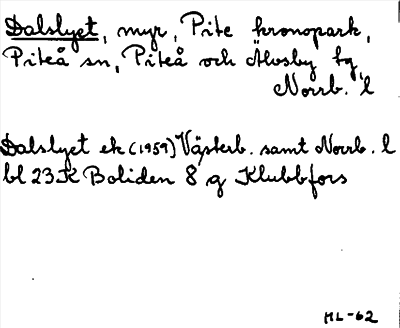 Dalslyet, myr, Pite kronopark,
Piteå sn, Piteå och Älvsby tg,
Norrb. l
Dalslyet ek (1959) Västerb. samt Norrb. l
bl 23K Boliden 8 g Klubbfors
ML-62